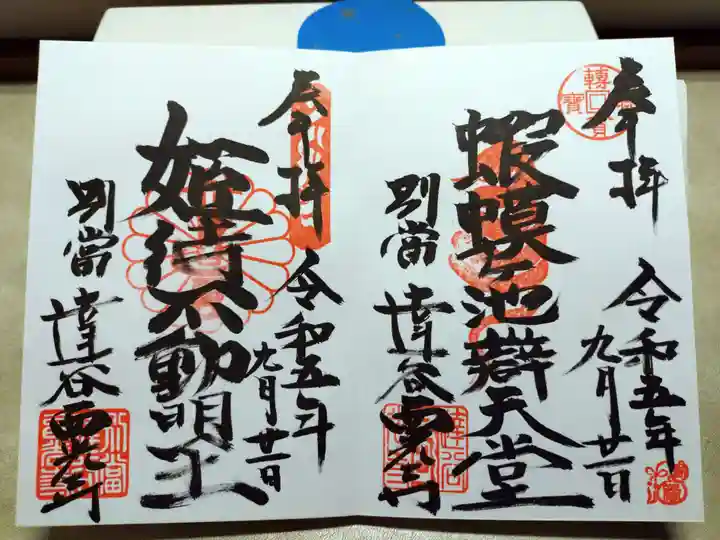 奉拝
令和五年
九月廿一日
蝦蟇ヶ池辯天堂
別當
達谷西光寺
奉拝
令和五年
九月廿一日
姫待不動明王
別當
達谷西光寺